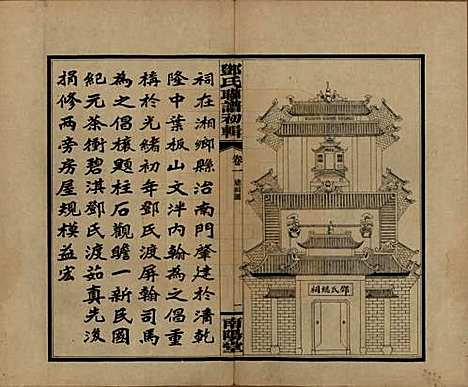 鄧氏總祠
鄧氏聯譜初輯
卷一
南陽堂
祠在湘鄉縣治南門肇建於清乾
隆中葉板山文泮內翰為之倡重
構於光緒初年鄧氏渡屏翰司馬
為之倡棟題柱石觀瞻一新民國
紀元茶衝碧淇鄧氏渡茹真先後
捐修兩旁房屋規模益宏